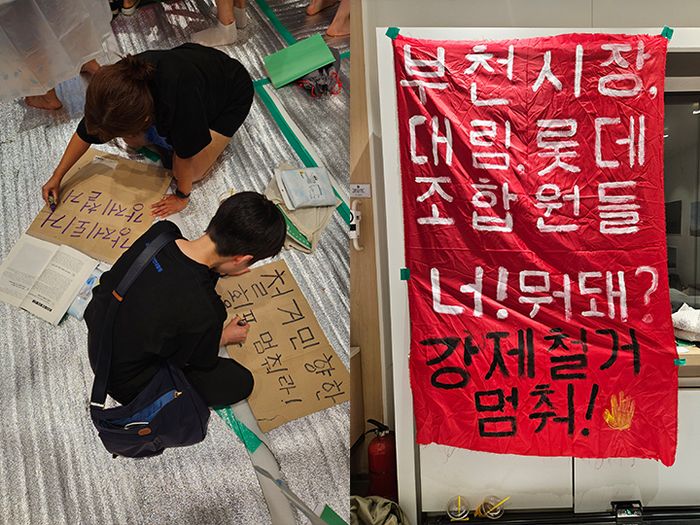 강제퇴거
강제철거
철거민 향한
폭력 멈춰라!
부천시장,
대림,롯데
조합원들
너!뭐돼?
강제철거
멈춰!